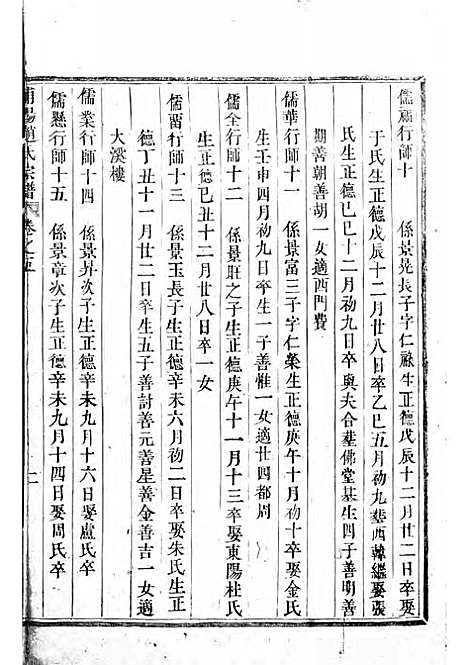 儒禰行師十　係景晃長子字仁祿生正德戊辰十二月廿二日卒娶
于氏生正德戊辰十二月廿八日卒乙巳五月初九塟西韓繼娶張
氏生正德己巳十二月初九日卒與夫合塟佛堂基生四子善明善
期善朝善胡一女適西門費
儒華行師十一　係景富三子字仁榮生正德庚午十月初十卒娶金氏
生壬申四月初九日卒生一子善惟一女適廿四都周
儒全行師十二　係景旺之子生正德庚午十一月十三卒娶東陽杜氏
生正德己丑十二月廿八日卒一女
儒畱行師十三　係景玉長子生正德辛未六月初二日卒娶朱氏生正
德丁丑十一月廿二日卒生五子善討善元善星善金善吉一女適
大溪樓
儒業行師十四　係景昇次子生正德辛未九月十六日娶盧氏卒
儒懸行師十五　係景章次子生正德辛未九月十四日娶周氏卒
浦陽趙氏宗譜　卷之五